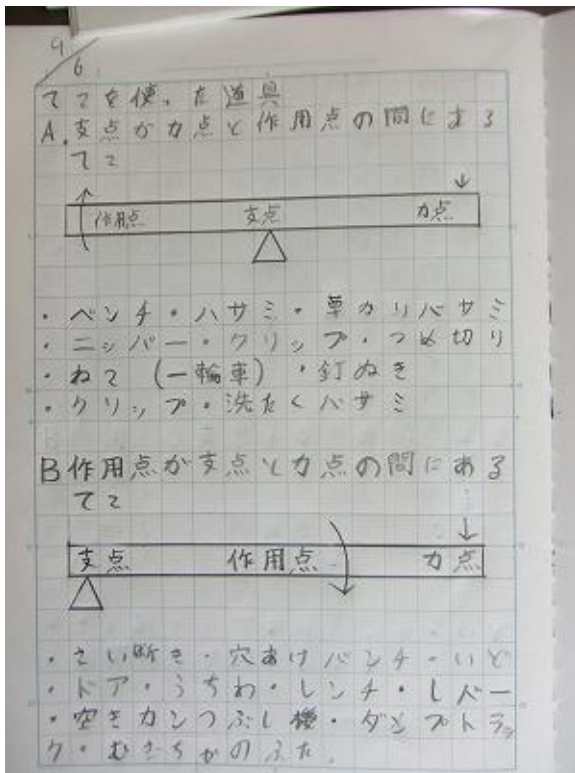 9/6
てこを使った道具
A.支点が力点と作用点の間にある
てこ
作用点 支点 力点
・ペンチ・ハサミ・草カリバサミ
・ニッパー・クリップ・つめ切り
・ねこ(一輪車)・釘ぬき
・クリップ・洗たくバサミ
B作用点が支点と力点の間にある
てこ
支点 作用点 力点
・さい断き・穴あけパンチ・いど
・ドア・うちわ・レンチ・レバー
・空きカンつぶし機・ダンプトラッ
ク・のふた。